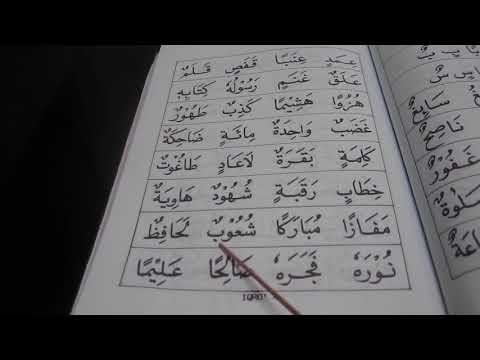 عِمَدٍ عِنَبًا قَفَصٍ قَلَمٌ
عَلَقٌ غَنَمٍ رَسُوْلُهُ كِتَابِهِ
هُزُوًا هَشِيْمًا كَذِبٌ طَهُوْرٌ
غَضَبٌ وَاحِدَةٌ مِائَةٍ ضَاحِكَةٌ
كَلِمَةٍ بَقَرَةٌ لَاعَادٍ طَاغُوْتٌ
خِطَابٍ رَقَبَةٍ شُهُوْدٌ هَاوِيَةٌ
مَفَازًا مُبَارَكًا شُعُوْبٌ لَحَافِظٌ
نُوْرَهٗ فَجَرَهٗ صَالِحًا عَلِيْمًا
سَايِغٌ
نَاصِحٌ
غَفُوْرٌ
IQRO'